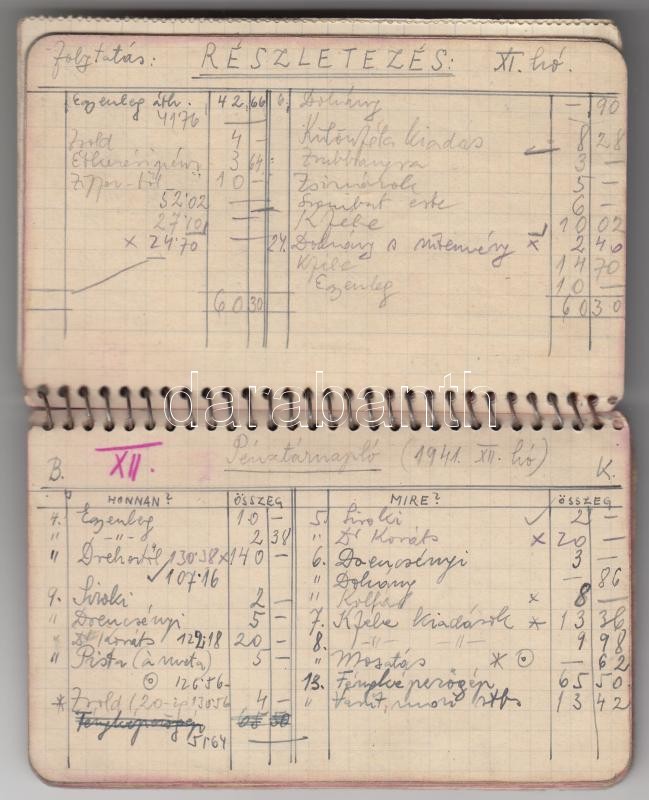 Folytatás: RÉSZLETEZÉS: XI. hó.
Egyenleg áth. 42 66 6. Dohány — 90
4176
Zsold 4 — Különféle kiadás 8 28
3 64 3 —
10 — 5 —
52'02 Szombat este 6 —
27'10 K.febe 10 02
x 24'70 24. Dohány s sütemény x 2 40
K.febe 14 70
Egyenleg 10 —
60 30 60 30
darabanth
B. XII. Pénztárnapló (1941. XII. hó) K.
HONNAN? ÖSSZEG MIRE? ÖSSZEG
4. Egyenleg 10 — 5. Siroki ✓ 2 —
" -"-"- 2 38 " Dr Kováts x 20 —
" 130'38 x 140 — 6. Drencsényi 3 —
✓ 107'16 " Dohány — 86
9. Siroki 2 — " x 8 —
" Drencsényi 5 — 7. K.febe kiadások * 13 36
" Dr Kováts 129'18 20 — 8. -"- -"- 9 98
" Pista 5 — " Mosatás * ⊙ — 62
⊙ 126'56 13. Fényképezőgép 65 50
* Zsold (20-ig 130'56 4 — " stb 13 42
Fényképezőgép 65 50
51'64